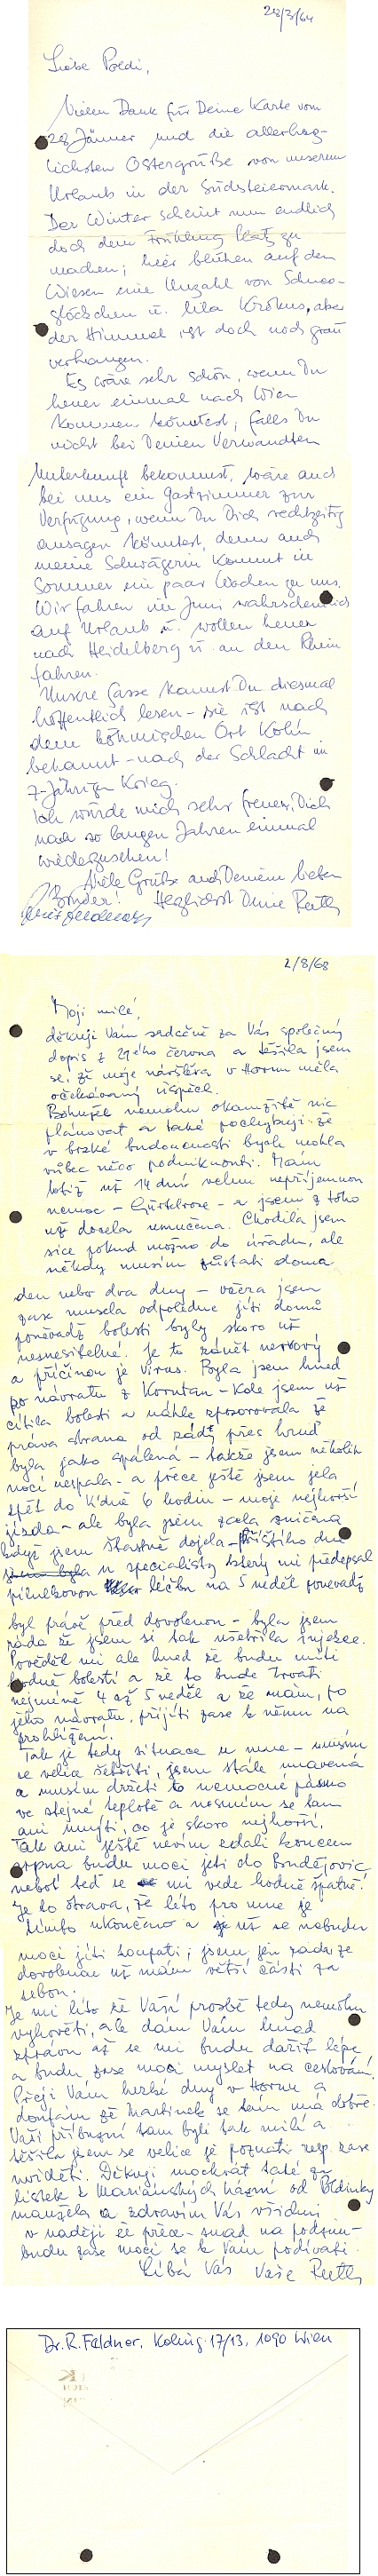 28/3/64
Liebe Poldi,
Vielen Dank für Deine Karte vom
28 Jänner und die allerherz-
lichsten Ostergrüße von unserem
Urlaub in der Südsteiermark.
Der Winter scheint nun endlich
doch dem Frühling Platz zu
machen; hier blühen auf den
Wiesen eine Unzahl von Schnee-
glöckchen u. lila Krokus, aber
der Himmel ist doch noch grau
verhangen.
Es wäre sehr schön, wenn Du
heuer einmal nach Wien
kommen könntest; falls Du
nicht bei Deinen Verwandten
Unterkunft bekommst, wäre auch
bei uns ein Gastzimmer zur
Verfügung, wenn Du Dich rechtzeitig
ansagen könntest, denn auch
meine Schwägerin kommt im
Sommer ein paar Wochen zu uns.
Wir fahren im Juni wahrscheinlich
auf Urlaub u. wollen heuer
nach Heidelberg u. an den Rhein
fahren.
Unsere Gasse kannst Du diesmal
hoffentlich lesen - sie ist nach
dem böhmischen Ort Kolin
bekannt - nach der Schlacht im
7-jährigen Krieg.
Ich würde mich sehr freuen, Dich
nach so langen Jahren einmal
wiederzusehen!
Viele Grüße auch Deinem lieben
Bruder! Herzlichst Deine Ruth
2/8/68
Moji milé,
děkuji Vám srdečně za Váš společný
dopis z 29ého června a těšila jsem
se, že moje návštěva v Hornu měla
očekávaný úspěch.
Bohužel nemohu okamžitě nic
plánovat a také pochybuji že
v brzké budoucnosti bych mohla
vůbec něco podniknouti. Mám
totiž už 14 dnů velmi nepříjemnou
nemoc - Gürtelrose - a jsem z toho
už docela umučena. Chodila jsem
sice pokud možno do úřadu, ale
někdy musím zůstati doma
den nebo dva dny - včera jsem
zase musela odpoledne jíti domů
poněvadž bolesti byly skoro už
nesnesitelné. Je to zánět nervový
a příčinou je virus. Byla jsem hned
po návratu z Korutan - kde jsem už
cítila bolesti a náhle zpozorovala že
pravá strana od zády přes hruď
byla jako spálená - takže jsem několik
nocí nespala - a přece ještě jsem jela
zpět do Vídně 6 hodin - moje nejhorší
jízda - ale byla jsem zcela zničena
když jsem šťastně dojela - příštího dne
u specialisty který mi předepsal
pilulkovou léčbu na 5 neděl poněvadž
byl právě před dovolenou - byla jsem
ráda že jsem si tak ušetřila injekce.
Pověděl mi ale hned že budu míti
hodně bolestí a že to bude trvati
nejméně 4 až 5 neděl a že mám, po
jeho návratu, přijíti zase k němu na
prohlížení.
Tak je tedy situace u mne - musím
se velice šetřiti, jsem stále unavená
a musím držeti to nemocné pásmo
ve stejné teplotě a nesmím se tam
ani mýti, co je skoro nejhorší.
Tak ani ještě nevím zdali koncem
srpna budu moci jeti do Budějovic
neboť teď se mi vede hodně špatně.
Je to otrava, že léto pro mne je
tímto ukončeno a už se nebudu
moci jíti koupati; jsem jen ráda že
dovolenou už mám větší části za
sebou.
Je mi líto že Vaší prosbě tedy nemohu
vyhověti, ale dám Vám hned
zprávu až se mi bude dařit lépe
a budu zase moci myslet na cestování.
Přeji Vám hezké dny v Hornu a
doufám že Martinek se tam má dobře.
Vaši příbuzní tam byli tak milí a
těšila jsem se velice je poznati resp. zase
uviděti. Děkuji mockrát také za
lístek z Mariánských Lázní od Poldinky
manžela a zdravím Vás všichni
v naději že přece - snad na podzim -
budu zase moci se k Vám podívati.
Líbá Vás Vaše Ruth
Dr. R. Feldner, Koling. 17/13, 1090 Wien